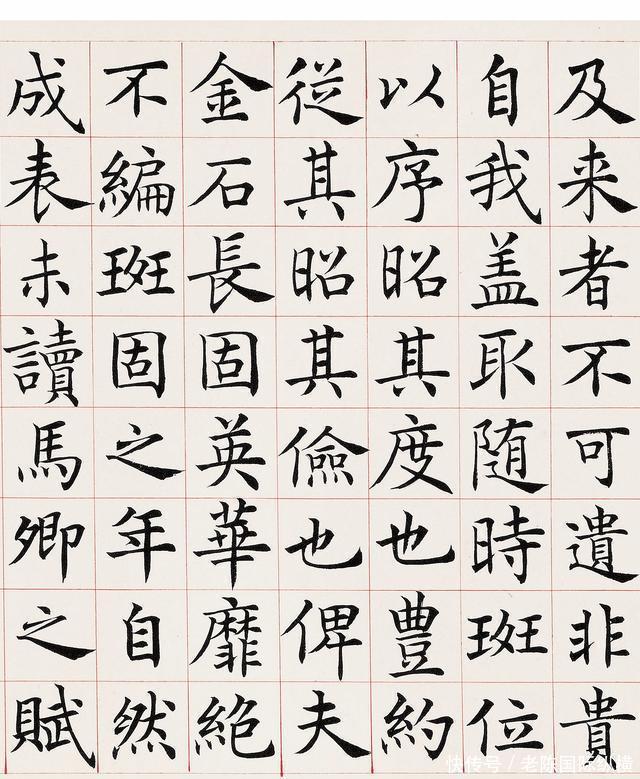 及来者不可遺非貴
自我盖取随時班位
以序昭其度也豊約
從其昭其儉也俾夫
金石長固英華靡絕
不編班固之年自然
成表未讀馬卿之賦
快传号／老陈国际纵横